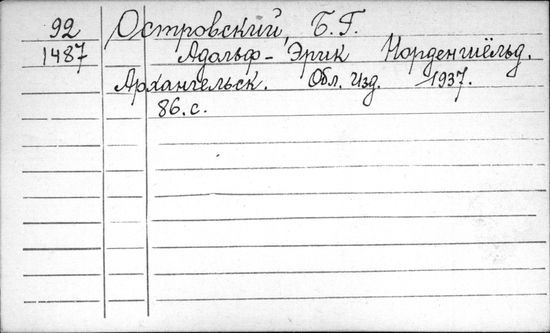 92 Островский, Б. Г.
1487 Адольф-Эрик Норденшёльд.
Архангельск. Обл. Изд. 1937.
86.с.